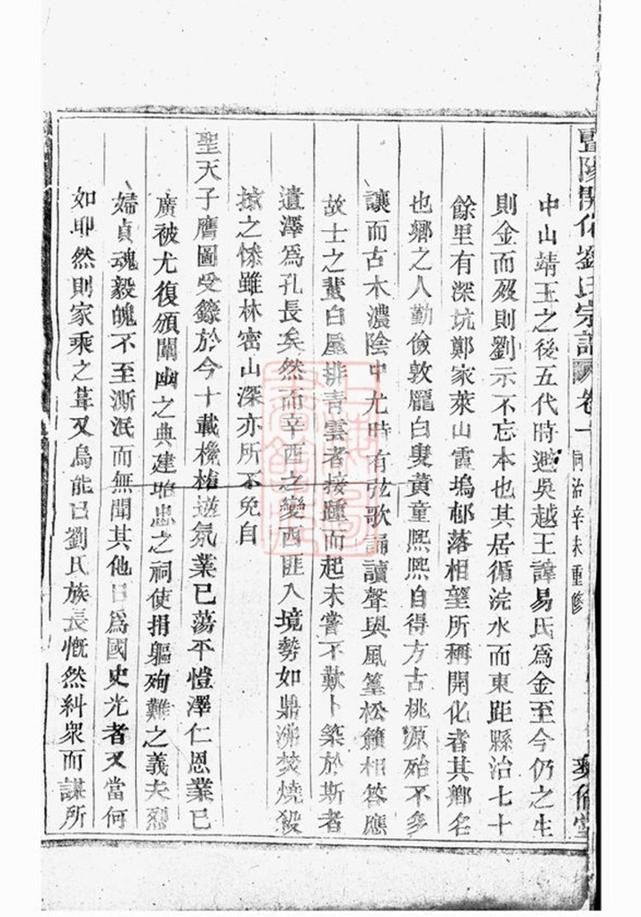 暨陽開化劉氏宗譜 卷一 同治辛未重修
中山靖王之後五代時避吳越王諱易氏為金至今仍之生
則金而歿則劉示不忘本也其居循浣水而東距縣治七十
餘里有深坑鄭家萊山霞塢邨落相望所稱開化者其鄉名
也鄉之人勤儉敦龐白叟黃童熙熙自得方古桃源殆不多
讓而古木濃陰中尤時有弦歌誦讀聲與風篁松籟相答應
故士之蜚白屋排青雲者接踵而起未嘗不歎卜築於斯者
遺澤為孔長矣然而辛酉之變西匪入境勢如鼎沸焚燒殺
掠之慘雖林密山深亦所不免自
聖天子膺圖受籙於今十載欃槍逆氛業已蕩平愷澤仁恩業已
廣被尤復頒闡幽之典建昭忠之祠使捐軀殉難之義夫烈
婦貞魂毅魄不至澌泯而無聞其他日為國史光者又當何
如耶然則家乘之葺又烏能已劉氏族長慨然糾眾而謀所